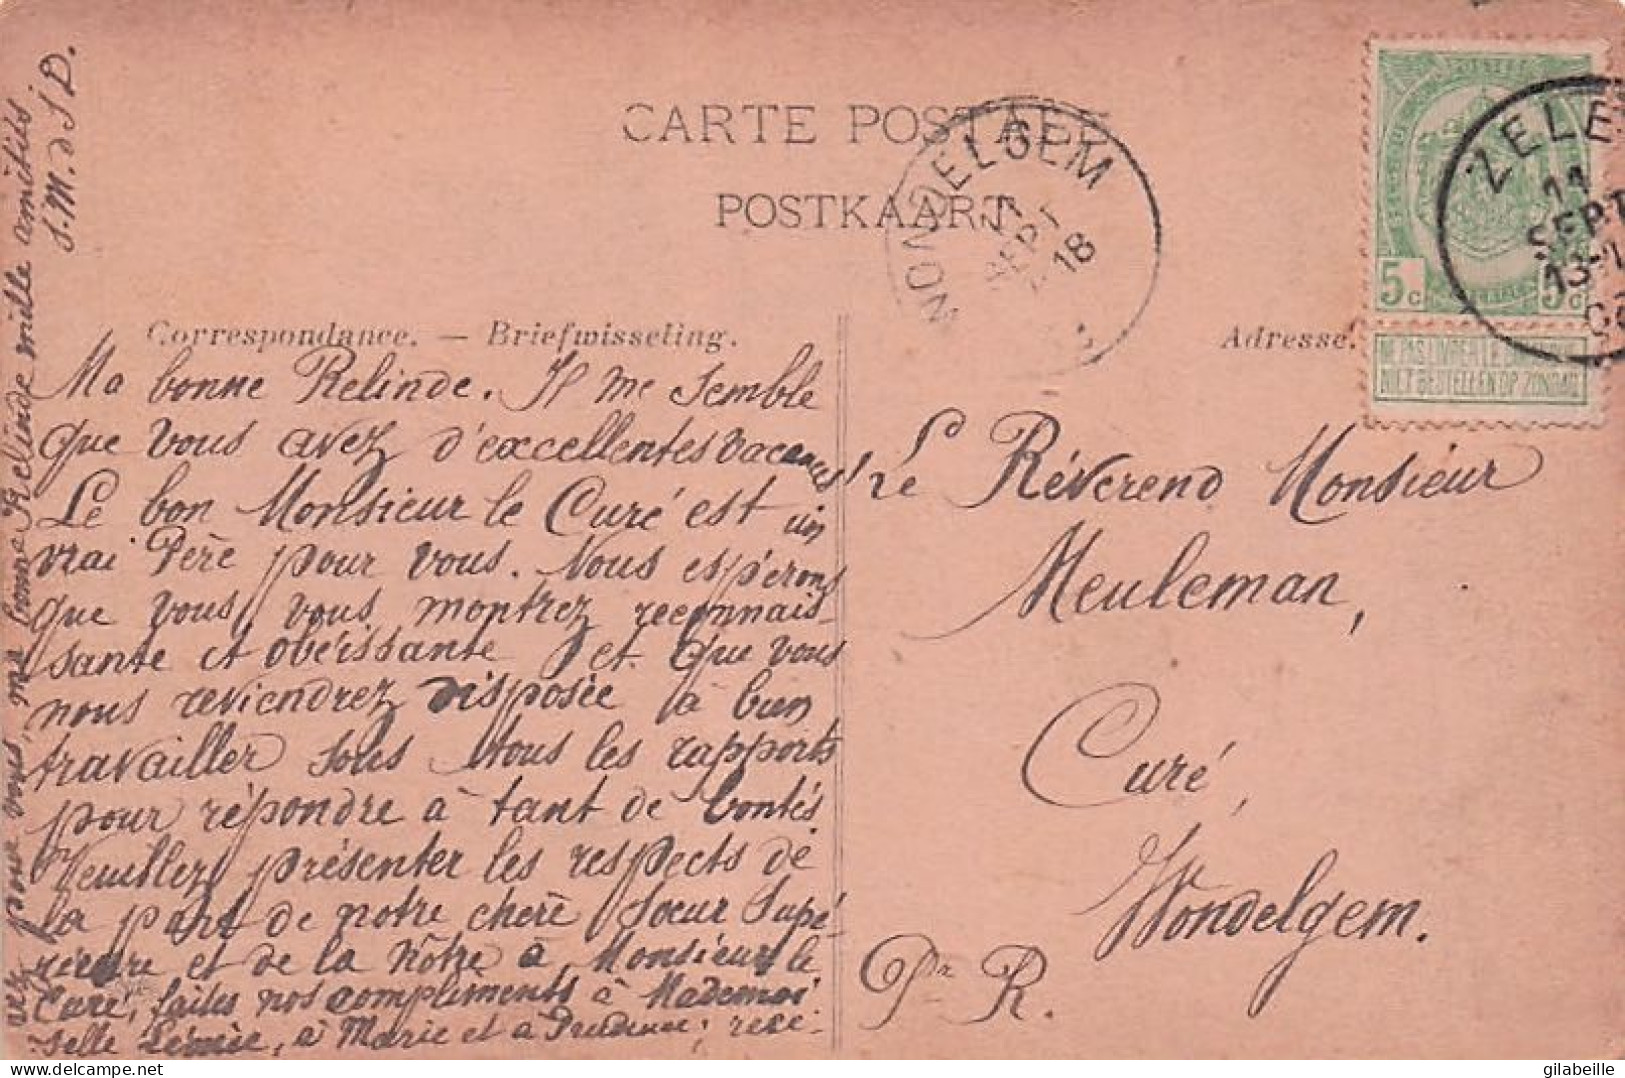 CARTE POSTALE
POSTKAART
WONDELGEM
SEPT
18
ZELE
11
SEPT
13-1
5c 5c
NE PAS LIVRER LE
NIET BESTELLEN OP ZONDAG
Correspondance. — Briefwisseling.
Adresse.
Ma bonne Relinde. Il me semble
que vous avez d'excellentes vacances!
Le bon Monsieur le Curé est un
vrai Père pour vous. Nous espérons
que vous vous montrez reconnais-
sante et obéissante et que vous
nous reviendrez disposée à bien
travailler sous tous les rapports
pour répondre à tant de bontés.
Veuillez présenter les respects de
la part de notre chère Sœur Supé-
rieure et de la nôtre à Monsieur le
Curé, faites nos compliments à Mademoi
selle Léonie, à Marie et à Prudence; rece-
vez pour vous, ma bonne Relinde mille amitiés.
S. M. d S D.
Le Réverend Monsieur
Meuleman,
Curé,
Wondelgem.
Pr R.
gilabeille